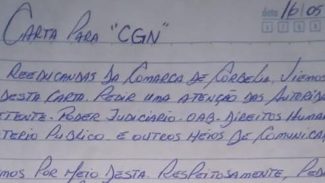 data 16/05
CARTA PARA "CGN"
REEDUCANDAS DA COMARCA DE CORBELIA, VIEMOS
DESTA CARTA. PEDIR UMA ATENÇÃO DAS AUTORIDA
ETENTE. PODER JUDICIARIO. OAB. DIREITOS HUMAN
TERIO PUBLICO E OUTROS MEIOS DE COMUNICA
MOS POR MEIO DESTA. RESPEITOSAMENTE, PED